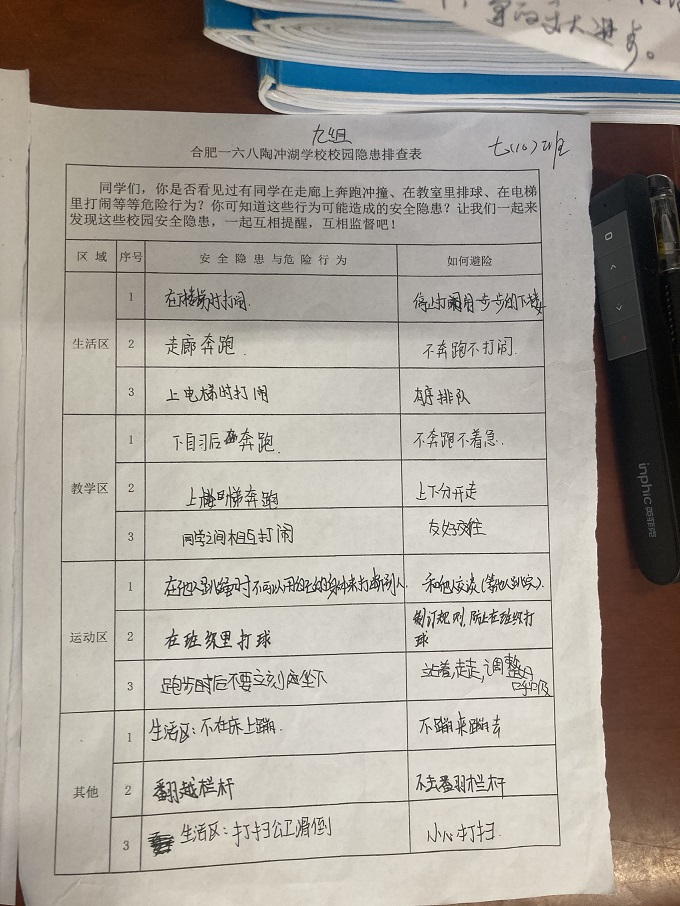 的 大进步。
九组
七(10)班
合肥一六八陶冲湖学校校园隐患排查表
同学们，你是否看见过有同学在走廊上奔跑冲撞、在教室里排球、在电梯
里打闹等等危险行为？你可知道这些行为可能造成的安全隐患？让我们一起来
发现这些校园安全隐患，一起互相提醒，互相监督吧！
区 域 序号 安 全 隐 患 与 危 险 行 为 如何避险
生活区
1 在楼梯时打闹. 停止打闹 一步步的下楼
2 走廊奔跑. 不奔跑不打闹.
3 上电梯时打闹 有序排队
教学区
1 下自习后奔跑. 不奔跑不着急.
2 上楼梯奔跑 上下分开走
3 同学之间相互打闹 友好交往
运动区
1 在他人跳绳时不可以用自己的身体来打断别人. 和他交谈(等他人跳完).
2 在班级里打球 制订规则,防止在班级打
球
3 跑步时后不要立刻坐下 站着,走走,调整
呼吸
其他
1 生活区:不在床上蹦. 不蹦来蹦去
2 翻越栏杆 不去翻栏杆
3 生活区:打扫公卫滑倒 小心打扫.
inphic 英菲克